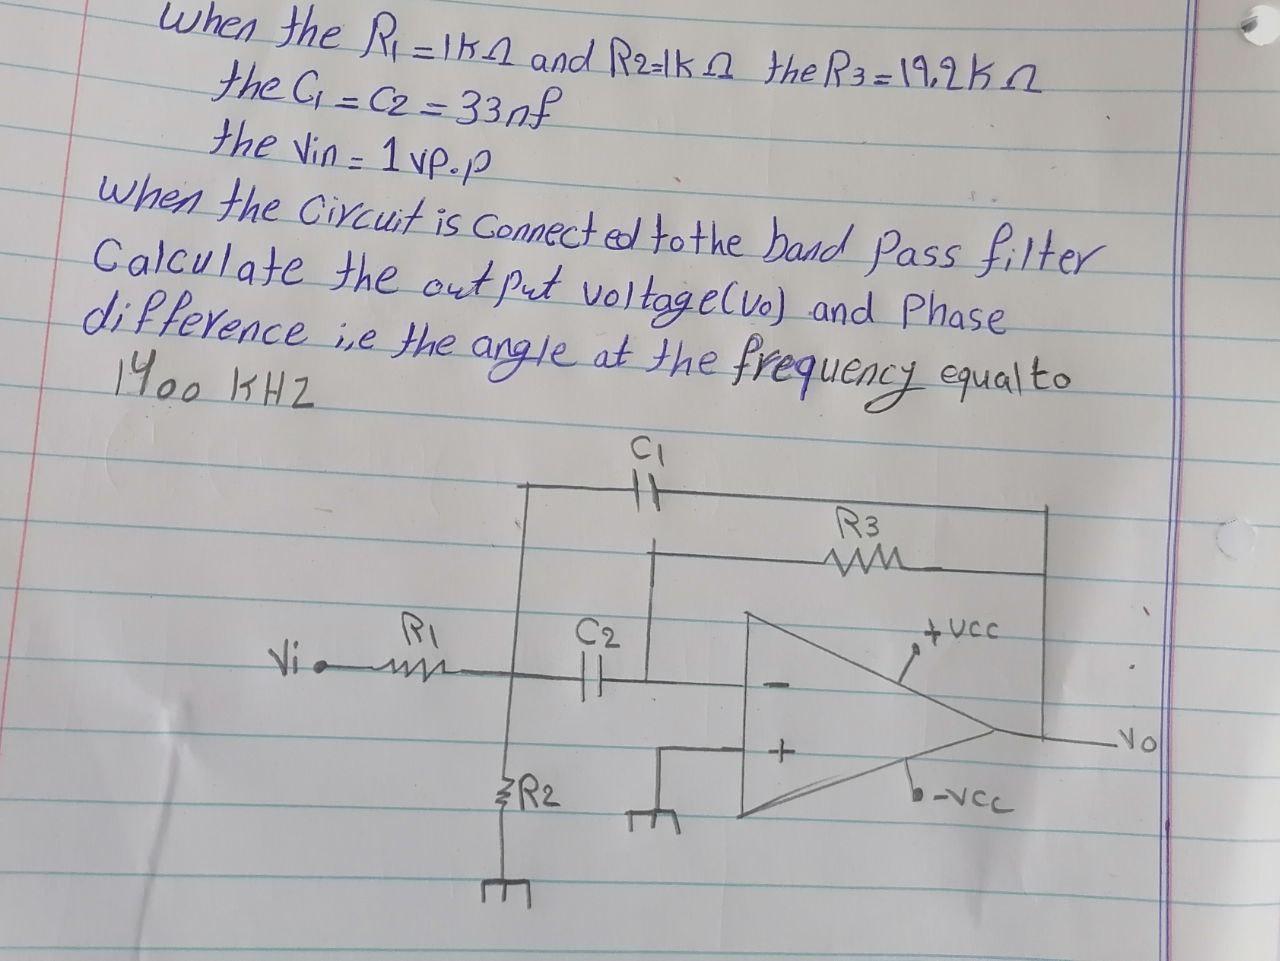 When the R1=1kΩ and R2=1kΩ the R3=19,2kΩ
the C1=C2=33nf
the Vin=1vp.p
When the Circuit is Connected to the band Pass filter
Calculate the output voltage(vo) and Phase
difference i,e the angle at the frequency equal to
1400 KHZ
C1
R3
R1
C2
+VCC
Vi
-
+
Vo
R2
-VCC